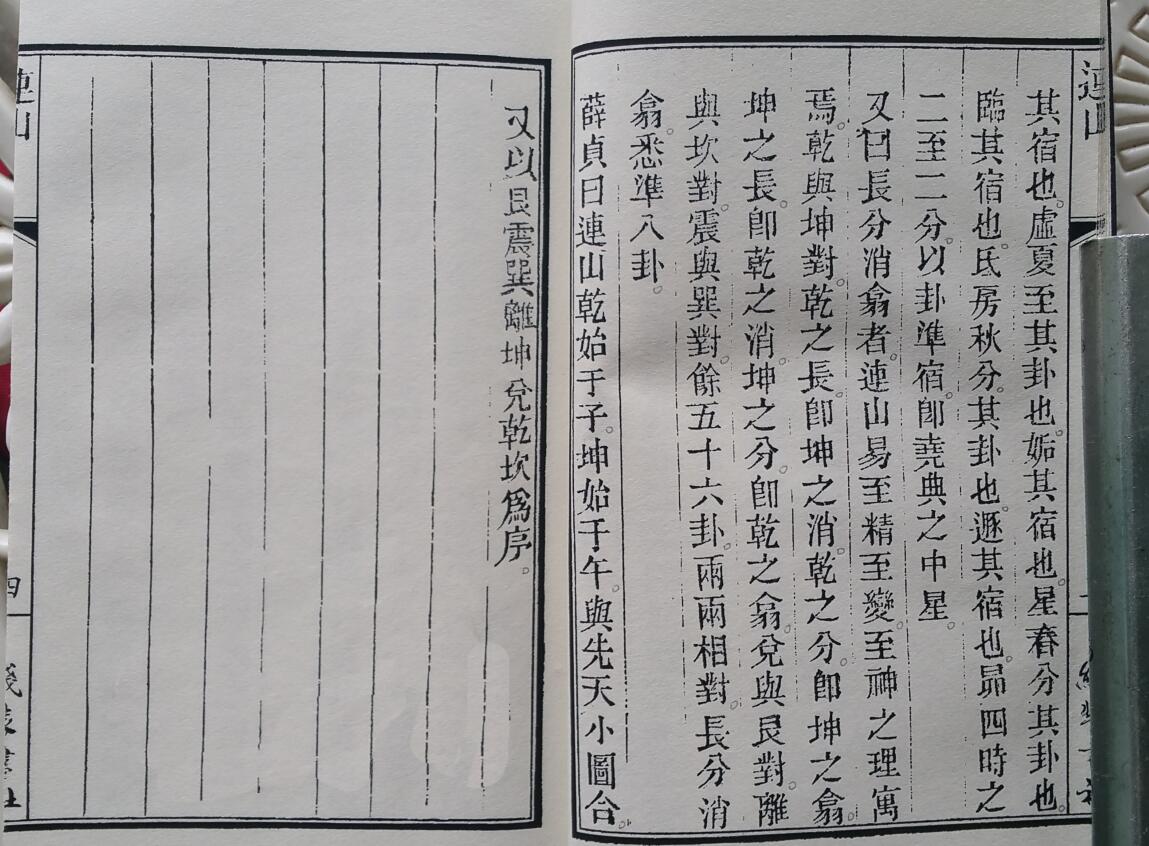 連山
其宿也。虛夏至其卦也。姤其宿也。星春分其卦也。
臨其宿也。氐房秋分。其卦也。遯其宿也。昴四時之
二至二分。以卦準宿。卽堯典之中星。
又曰長分消翕者。連山易至精至變。至神之理寓
焉。乾與坤對。乾之長。卽坤之消。乾之分。卽坤之翕。
坤之長。卽乾之消。坤之分。卽乾之翕。兌與艮對。離
與坎對。震與巽對。餘五十六卦。兩兩相對。長分消
翕。悉準八卦。
薛貞曰連山乾始于子。坤始于午。與先天小圖合。
又以艮震巽離坤兌乾坎爲序。
連山
四